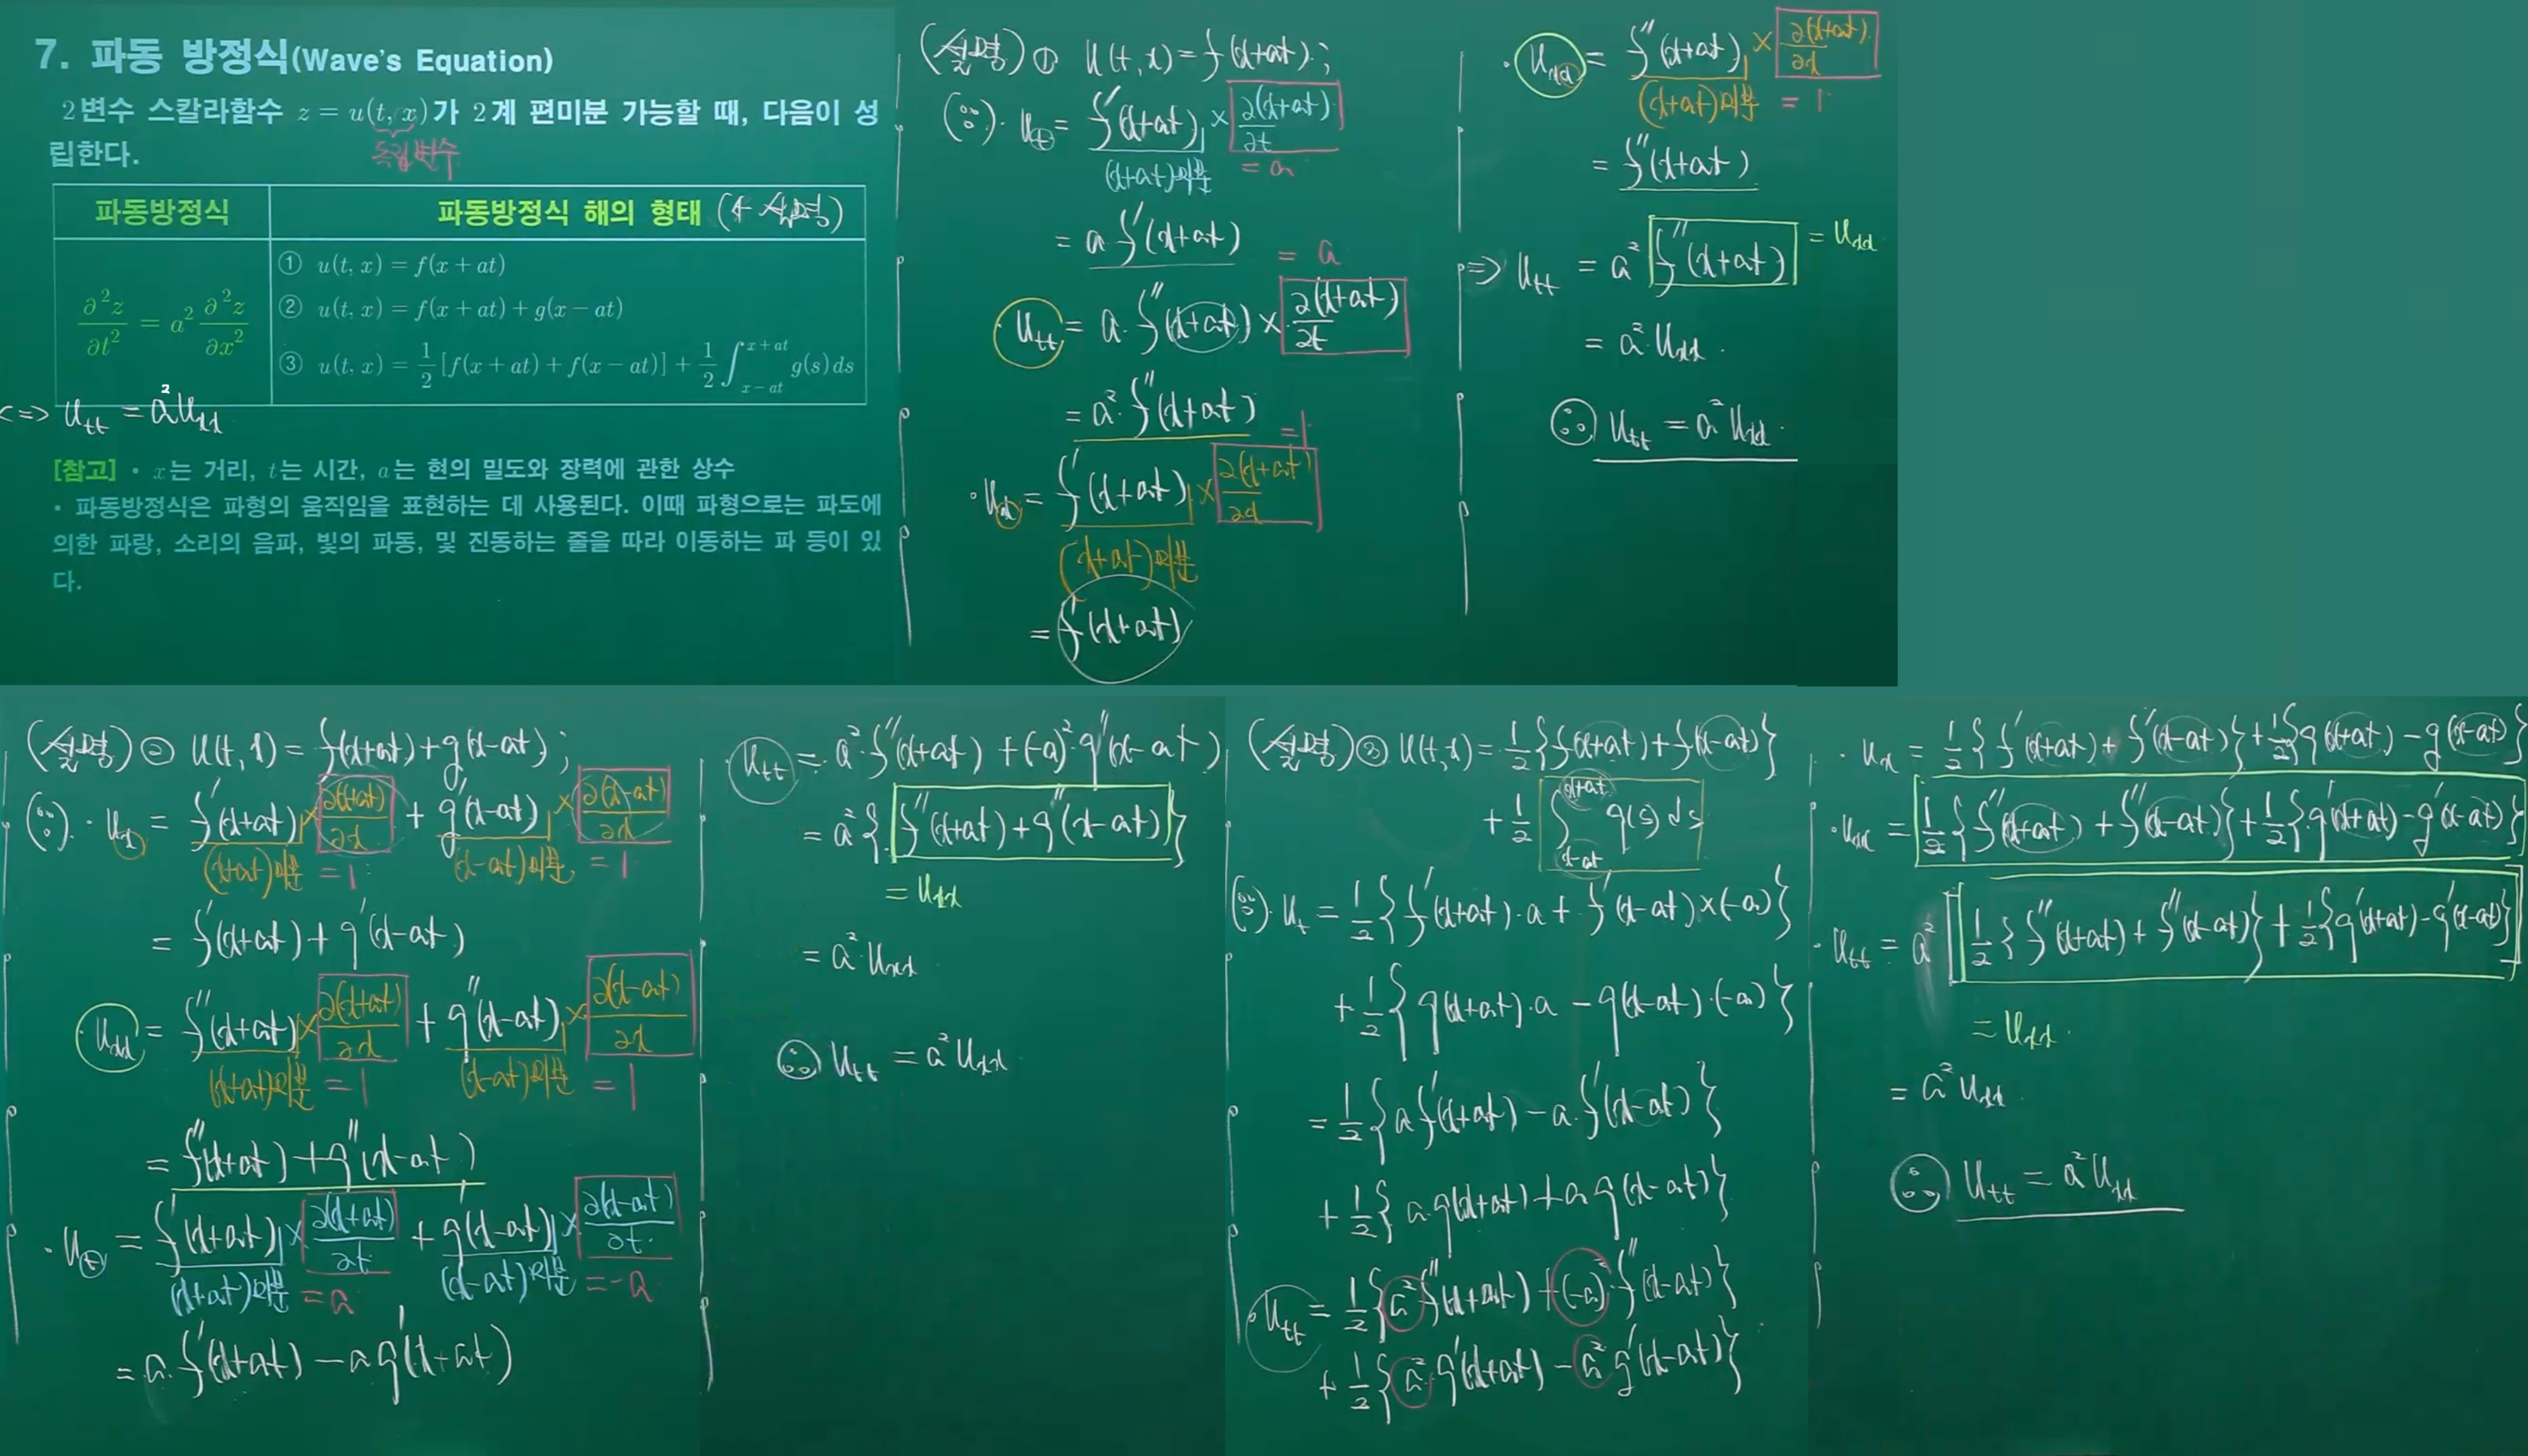 7. 파동 방정식(Wave's Equation)
2변수 스칼라함수 z = u(t, x)가 2계 편미분 가능할 때, 다음이 성
립한다.
독립변수
파동방정식
파동방정식 해의 형태 (& 설명)
∂²z/∂t² = a² ∂²z/∂x²
① u(t, x) = f(x + at)
② u(t, x) = f(x + at) + g(x − at)
③ u(t, x) = 1/2 [f(x + at) + f(x − at)] + 1/2 ∫_{x−at}^{x+at} g(s) ds
<=> u_tt = a² u_xx
[참고] • x는 거리, t는 시간, a는 현의 밀도와 장력에 관한 상수
• 파동방정식은 파형의 움직임을 표현하는 데 사용된다. 이때 파형으로는 파도에
의한 파랑, 소리의 음파, 빛의 파동, 및 진동하는 줄을 따라 이동하는 파 등이 있
다.
(설명) ① u(t, x) = f(x+at) ;
(∵) · u_t = f'(x+at) × ∂(x+at)/∂t
(x+at)미분 = a
= a f'(x+at)
= a
u_tt = a · f''(x+at) × ∂(x+at)/∂t
= a² · f''(x+at)
= 1
· u_x = f'(x+at) × ∂(x+at)/∂x
(x+at)미분
= f'(x+at)
· u_xx = f''(x+at) × ∂(x+at)/∂x
(x+at)미분 = 1
= f''(x+at)
=> u_tt = a² f''(x+at) = u_xx
= a² u_xx .
∴ u_tt = a² u_xx .
(설명) ② u(t, x) = f(x+at) + g(x-at) ;
(∵) · u_x = f'(x+at) × ∂(x+at)/∂x + g'(x-at) × ∂(x-at)/∂x
(x+at)미분 = 1 (x-at)미분 = 1
= f'(x+at) + g'(x-at)
u_xx = f''(x+at) × ∂(x+at)/∂x + g''(x-at) × ∂(x-at)/∂x
(x+at)미분 = 1 (x-at)미분 = 1
= f''(x+at) + g''(x-at)
· u_t = f'(x+at) × ∂(x+at)/∂t + g'(x-at) × ∂(x-at)/∂t
(x+at)미분 = a (x-at)미분 = -a
= a · f'(x+at) − a g'(x-at)
· u_tt = a² · f''(x+at) + (-a)² · g''(x-at)
= a² { f''(x+at) + g''(x-at) }
= u_xx
= a² u_xx
∴ u_tt = a² u_xx
(설명) ③ u(t, x) = 1/2 { f(x+at) + f(x-at) }
+ 1/2 ∫_{x-at}^{x+at} g(s) ds
(∵) · u_t = 1/2 { f'(x+at) · a + f'(x-at) × (-a) }
+ 1/2 { g(x+at) · a − g(x-at) · (-a) }
= 1/2 { a f'(x+at) − a · f'(x-at) }
+ 1/2 { a g(x+at) + a g(x-at) }
· u_tt = 1/2 { a² f''(x+at) + (-a)² · f''(x-at) }
+ 1/2 { a² g'(x+at) − a² g'(x-at) }
· u_x = 1/2 { f'(x+at) + f'(x-at) } + 1/2 { g(x+at) − g(x-at) }
· u_xx = 1/2 { f''(x+at) + f''(x-at) } + 1/2 { g'(x+at) − g'(x-at) }
· u_tt = a² [ 1/2 { f''(x+at) + f''(x-at) } + 1/2 { g'(x+at) − g'(x-at) } ]
= u_xx
= a² u_xx
∴ u_tt = a² u_xx